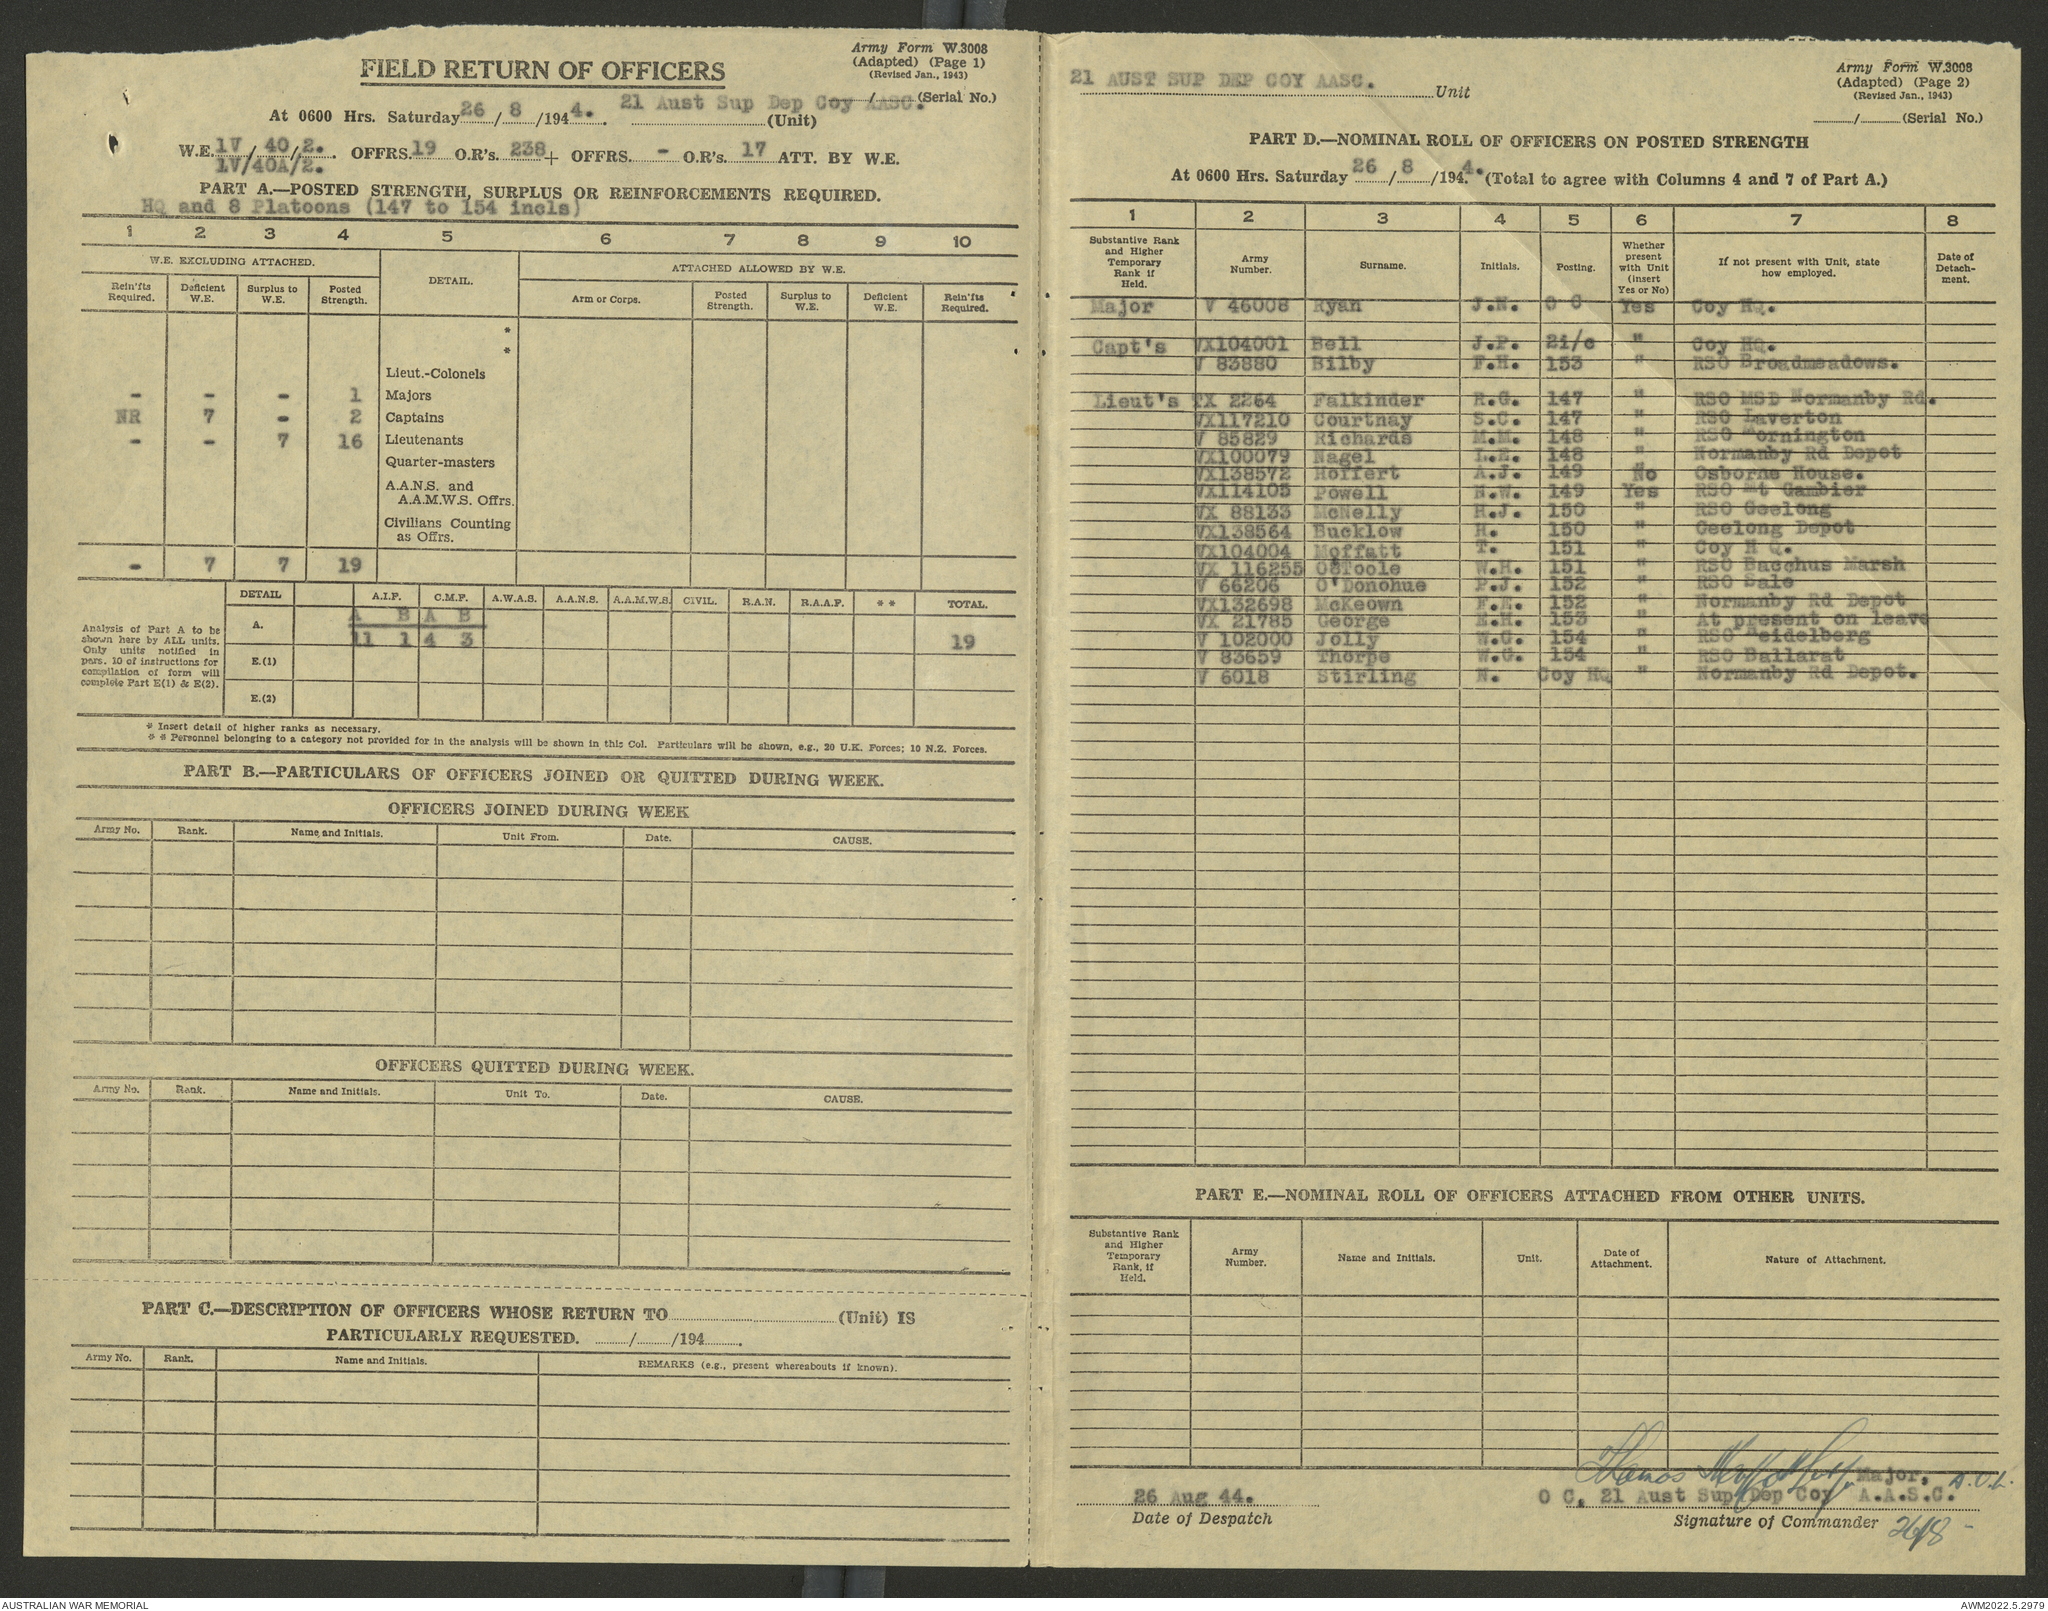 Army Form W.3008
(Adapted) (Page 1)
(Revised Jan., 1943)
FIELD RETURN OF OFFICERS
/ (Serial No.)
At 0600 Hrs. Saturday 26/8/1944. 21 Aust Sup Dep Coy AASC. (Unit)
W.E. 1V/40/2. OFFRS. 19 O.R's. 238 + OFFRS. - O.R's. 17 ATT. BY W.E.
1V/40A/2.
PART A.—POSTED STRENGTH, SURPLUS OR REINFORCEMENTS REQUIRED.
HQ and 8 Platoons (147 to 154 incls)
1 2 3 4 5 6 7 8 9 10
W.E. EXCLUDING ATTACHED. DETAIL. ATTACHED ALLOWED BY W.E.
Rein'fts Required. Deficient W.E. Surplus to W.E. Posted Strength. Arm or Corps. Posted Strength. Surplus to W.E. Deficient W.E. Rein'fts Required.
*
*
Lieut.-Colonels
- - - 1 Majors
NR 7 - 2 Captains
- - 7 16 Lieutenants
Quarter-masters
A.A.N.S. and A.A.M.W.S. Offrs.
Civilians Counting as Offrs.
- 7 7 19
DETAIL A.I.F. C.M.F. A.W.A.S. A.A.N.S. A.A.M.W.S. CIVIL. R.A.N. R.A.A.F. * * TOTAL.
A B A B
A. 11 1 4 3 19
E.(1)
E.(2)
Analysis of Part A to be
shown here by ALL units.
Only units notified in
pars. 10 of instructions for
compilation of form will
complete Part E(1) & E(2).
* Insert detail of higher ranks as necessary.
* * Personnel belonging to a category not provided for in the analysis will be shown in this Col. Particulars will be shown, e.g., 20 U.K. Forces; 10 N.Z. Forces.
PART B.—PARTICULARS OF OFFICERS JOINED OR QUITTED DURING WEEK.
OFFICERS JOINED DURING WEEK
Army No. Rank. Name and Initials. Unit From. Date. CAUSE.
OFFICERS QUITTED DURING WEEK.
Army No. Rank. Name and Initials. Unit To. Date. CAUSE.
PART C.—DESCRIPTION OF OFFICERS WHOSE RETURN TO (Unit) IS
PARTICULARLY REQUESTED. / /194 .
Army No. Rank. Name and Initials. REMARKS (e.g., present whereabouts if known).
21 AUST SUP DEP COY AASC. Unit
Army Form W.3008
(Adapted) (Page 2)
(Revised Jan., 1943)
/ (Serial No.)
PART D.—NOMINAL ROLL OF OFFICERS ON POSTED STRENGTH
At 0600 Hrs. Saturday 26/8/1944. (Total to agree with Columns 4 and 7 of Part A.)
1 2 3 4 5 6 7 8
Substantive Rank and Higher Temporary Rank if Held. Army Number. Surname. Initials. Posting. Whether present with Unit (insert Yes or No) If not present with Unit, state how employed. Date of Detachment.
Major V 46008 Ryan J.N. O C Yes Coy HQ.
Capt's VX104001 Bell J.P. 2i/c " Coy HQ.
V 83880 Bilby F.H. 153 " RSO Broadmeadows.
Lieut's TX 2264 Falkinder R.G. 147 " RSO MSD Normanby Rd.
VX117210 Courtnay S.C. 147 " RSO Laverton
V 85829 Richards M.M. 148 " RSO Mornington
VX100079 Nagel L.E. 148 " Normanby Rd Depot
VX138572 Hoffert A.J. 149 No Osborne House.
VX114105 Powell N.W. 149 Yes RSO Mt Gambier
VX 88133 McNelly H.J. 150 " RSO Geelong
VX138564 Bucklow H. 150 " Geelong Depot
VX104004 Moffatt T. 151 " Coy H Q.
VX 116255 O'Toole W.H. 151 " RSO Bacchus Marsh
V 66206 O'Donohue P.J. 152 " RSO Sale
VX132698 McKeown F.E. 152 " Normanby Rd Depot
VX 21785 George E.H. 153 " At present on leave
V 102000 Jolly W.G. 154 " RSO Heidelberg
V 83659 Thorpe W.G. 154 " RSO Ballarat
V 6018 Stirling N. Coy HQ " Normanby Rd Depot.
PART E.—NOMINAL ROLL OF OFFICERS ATTACHED FROM OTHER UNITS.
Substantive Rank and Higher Temporary Rank, if Held. Army Number. Name and Initials. Unit. Date of Attachment. Nature of Attachment.
Major,
26 Aug 44. O C, 21 Aust Sup Dep Coy A.A.S.C.
Date of Despatch Signature of Commander 26/8
AUSTRALIAN WAR MEMORIAL AWM2022.5.2979